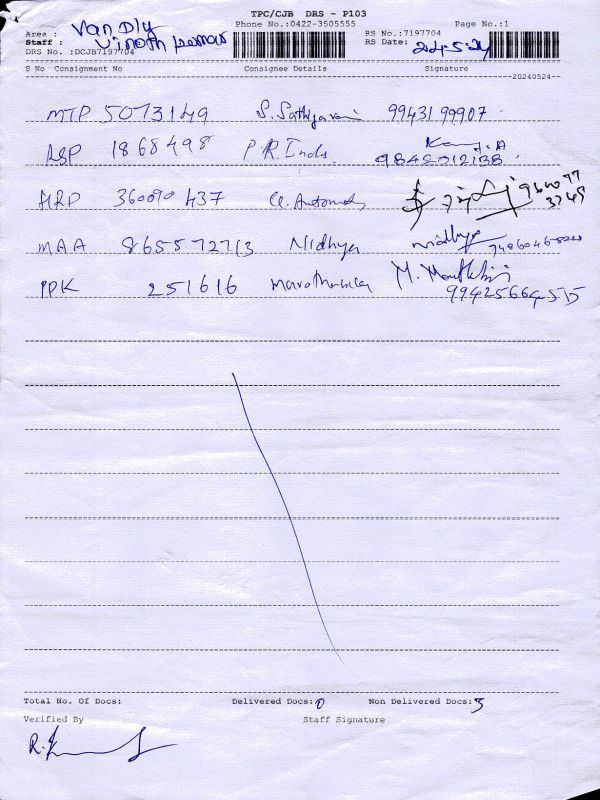 TPC/CJB DRS - P103
Phone No.:0422-3505555 Page No.:1
Area : Van Dly
Staff : Vinoth Kumar
RS No.:7197704
RS Date: 24-5-24
DRS No. :DCJB7197704
S No Consignment No Consignee Details Signature
--20240524--
MTP 5073149 S. Sathiyavani 99431 99907
1868498 P.R. Indu 9842012138
360090 437
MAA 865572713 Nidhya Nidhya
PPK 251616 9942566455
Total No. Of Docs: Delivered Docs: 0 Non Delivered Docs: 5
Verified By Staff Signature